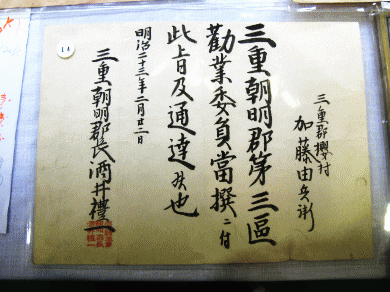 三重郡櫻村
加藤由兵衛
三重朝明郡第三區
勸業委員當撰ニ付
此旨及通達候也
明治二十三年二月廿二日
三重朝明郡長酒井禮一
14